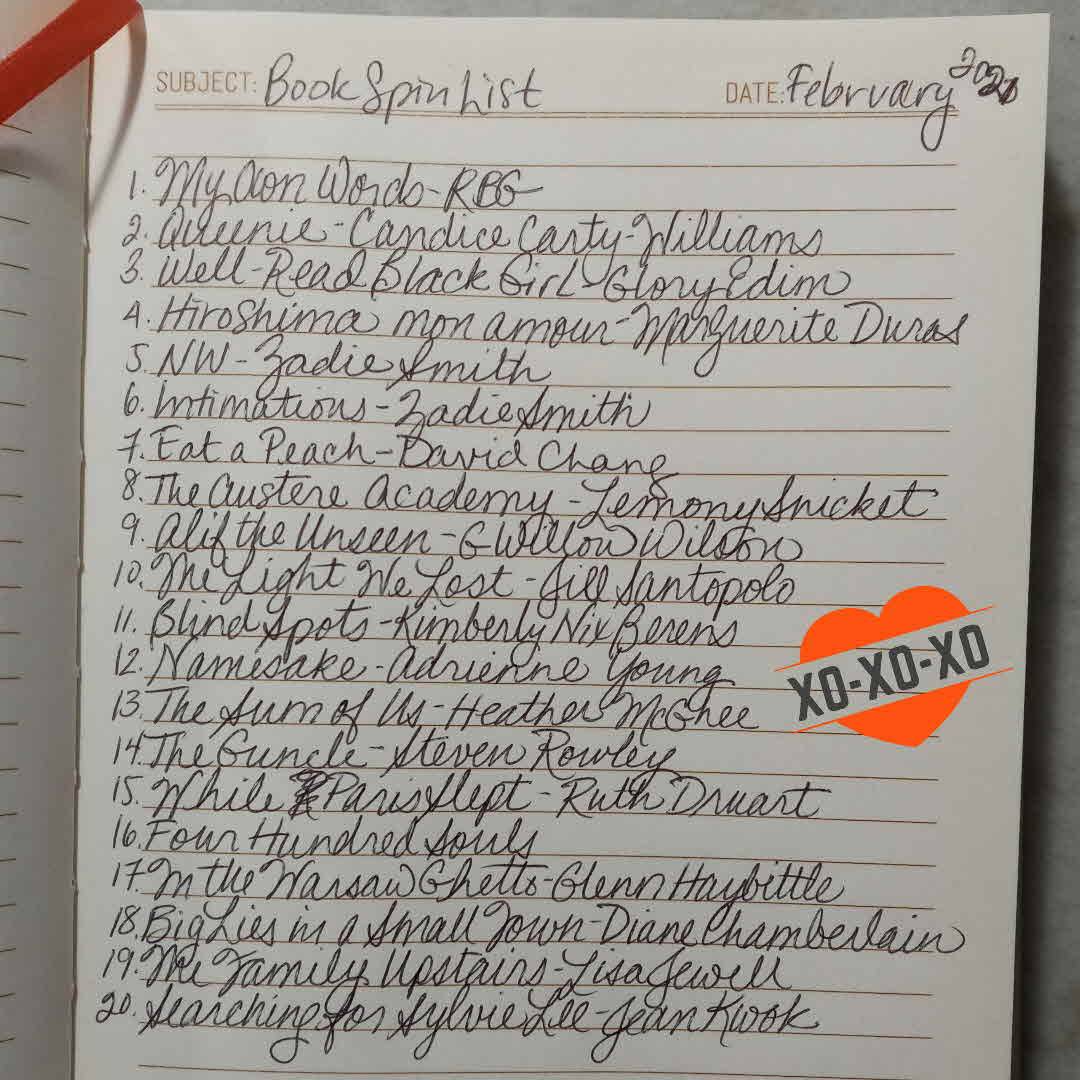 SUBJECT: Book Spin List DATE: February 2021
1. My Own Words - RBG
2. Queenie - Candice Carty-Williams
3. Well-Read Black Girl - Glory Edim
4. Hiroshima mon amour - Marguerite Duras
5. NW - Zadie Smith
6. Intimations - Zadie Smith
7. Eat a Peach - David Chang
8. The Austere Academy - Lemony Snicket
9. Alif the Unseen - G Willow Wilson
10. The Light We Lost - Jill Santopolo
11. Blind Spots - Kimberly Nix Berens
12. Namesake - Adrienne Young
13. The Sum of Us - Heather McGhee
XO-XO-XO
14. The Guncle - Steven Rowley
15. While Paris Slept - Ruth Druart
16. Four Hundred Souls
17. In the Warsaw Ghetto - Glenn Haybittle
18. Big Lies in a Small Town - Diane Chamberlain
19. The Family Upstairs - Lisa Jewell
20. Searching for Sylvie Lee - Jean Kwok